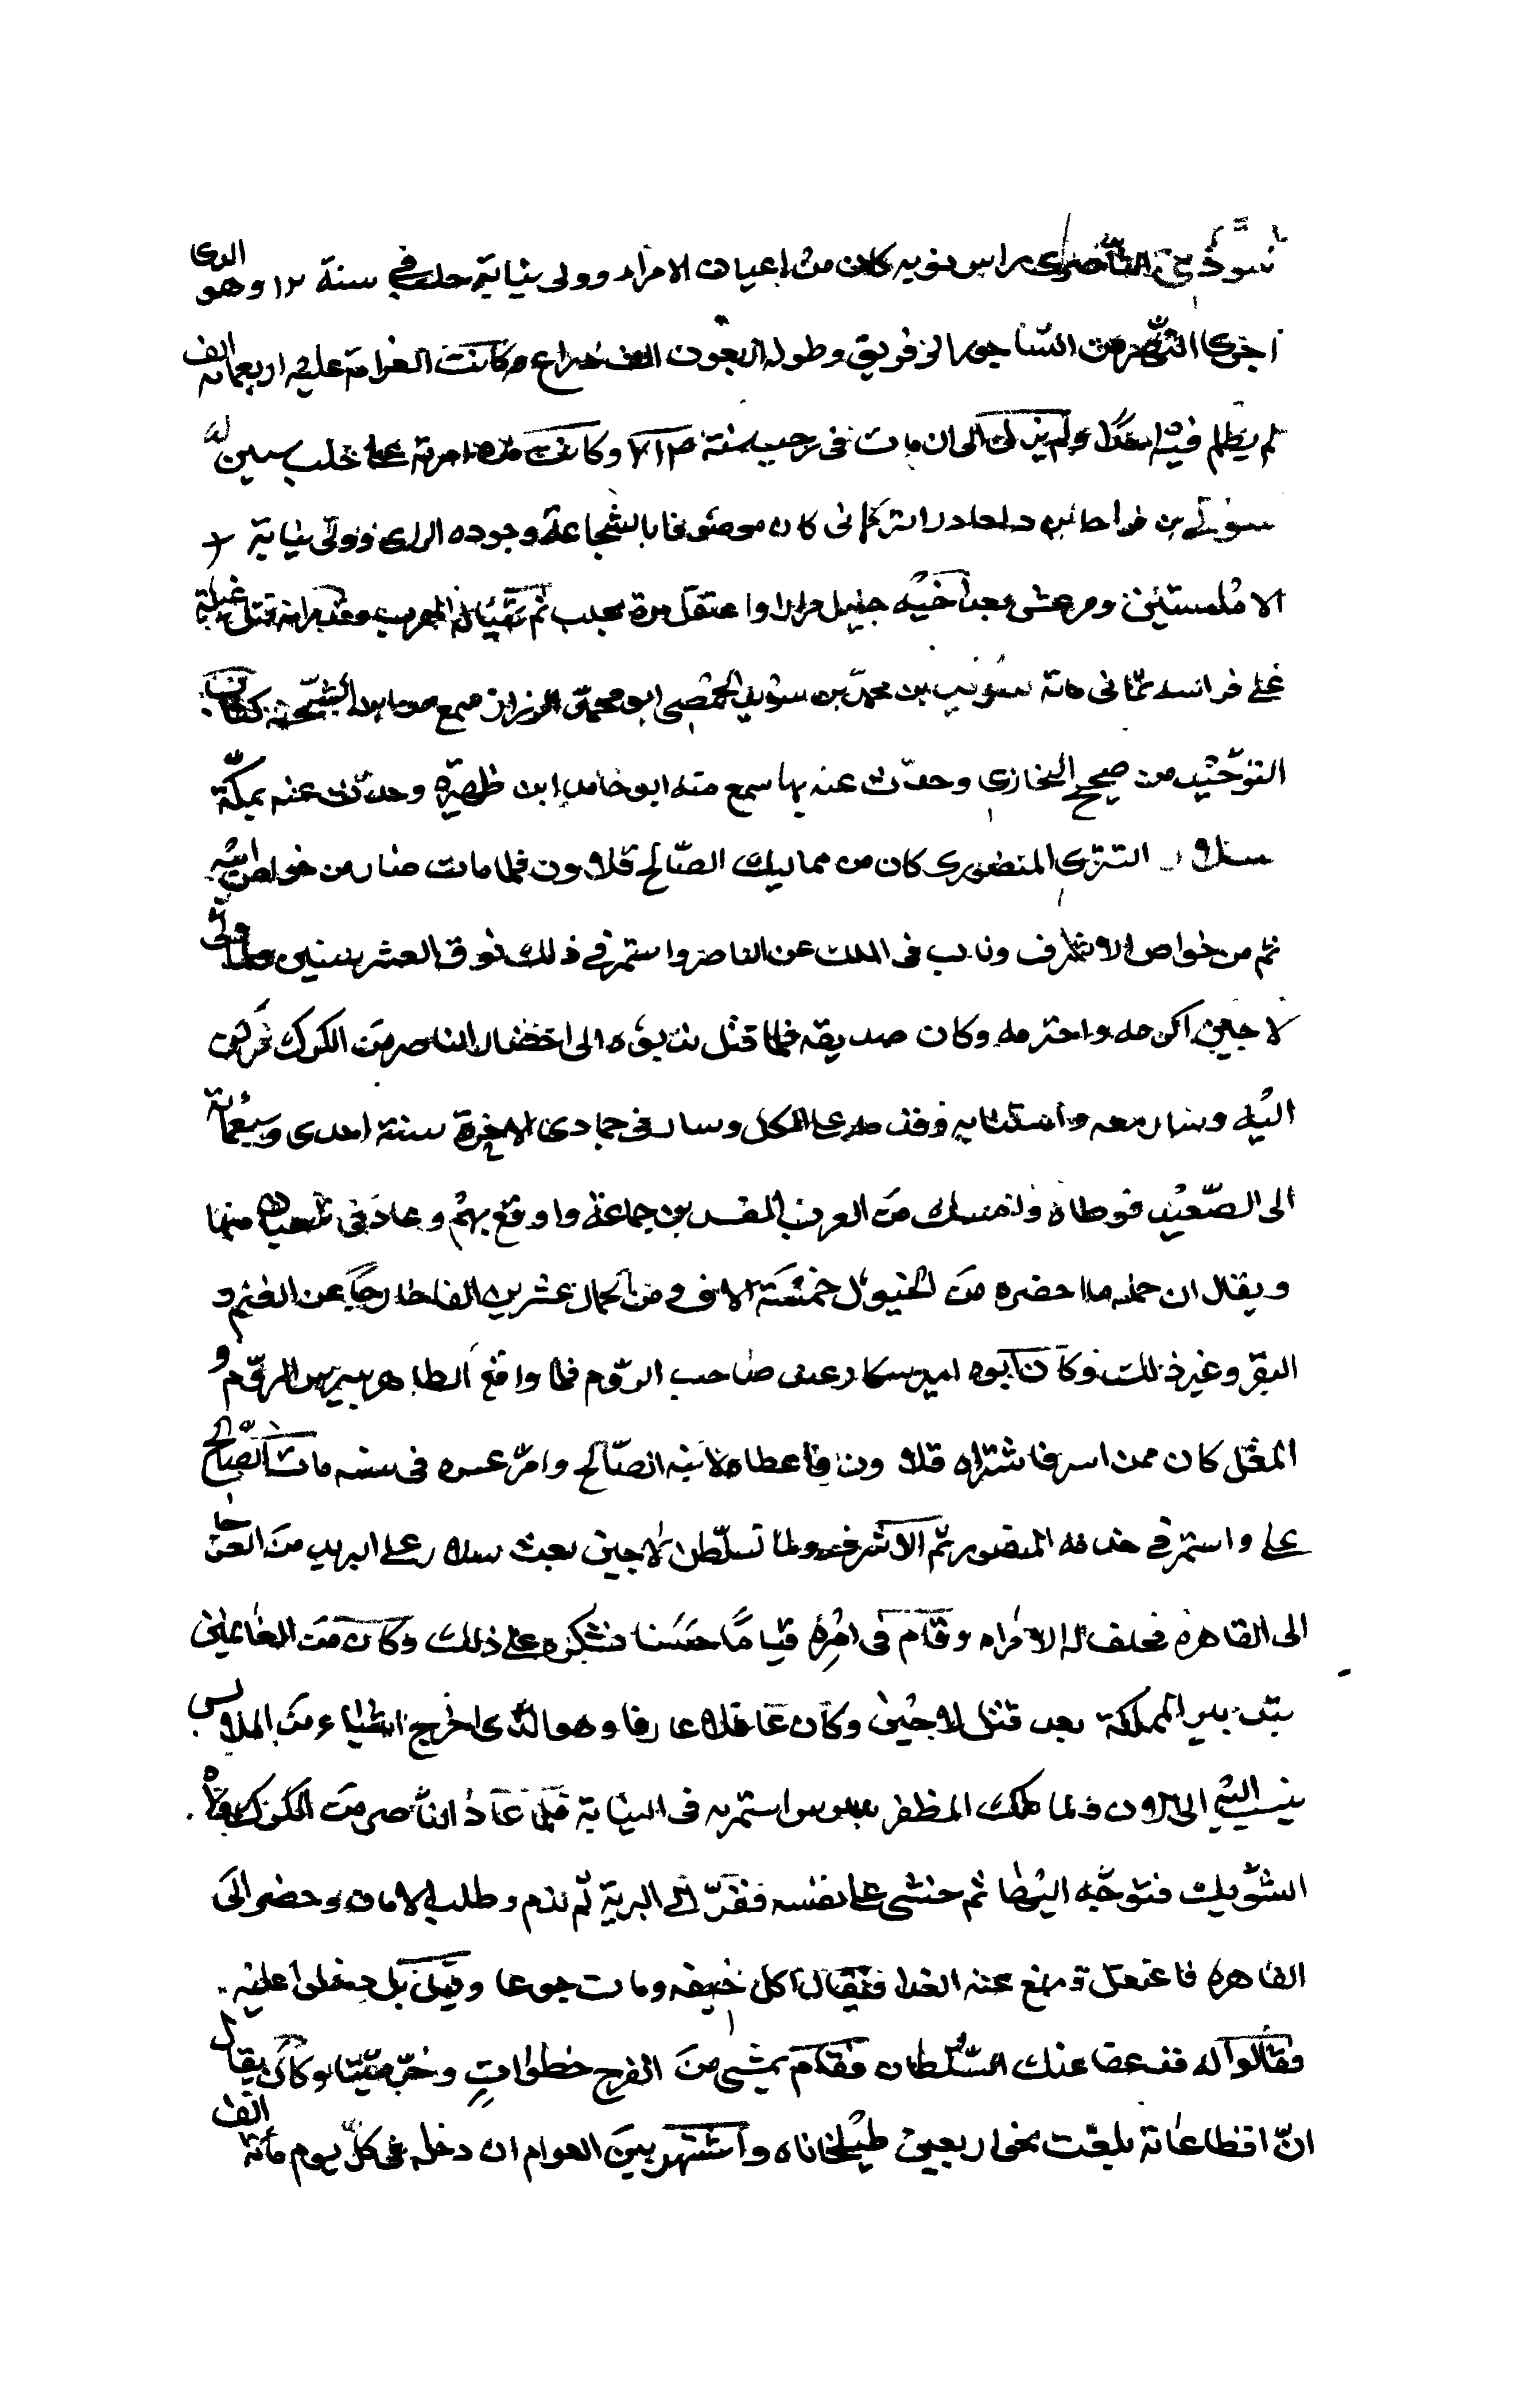 سودي الناصري راس نوبه كان من اعيان الامراء وولى نيابة حلب في سنة ١٢ وهو الدى
اجرى النهر من الساجور الى قويق وطوله اربعون الف ذراع وكانت الغرامة عليه اربعماية الف
لم يظلم فيه احدا ولم يزل الى ان مات في رجب سنة ٧١٤ وكانت مدة امرته على حلب سنين
بن قراجا بن دلغادر التركمانى كان موصوفا بالشجاعة وجوده الراى وولى نيابة
الابلستين ومرعش بعد اخيه خليل مرارا واعتقل مرة بحلب ثم قتل غيلة
على فراشه ثمانى ماية سونج بن محمد بن سونج الحمصي ابو محمد البزاز سمع من ابن الشحنة كتاب
التوحيد من صحيح البخاري وحدث عنه بها سمع منه ابو حامد ابن ظهيرة وحدث عنه بمكة
سلار التترى المنصورى كان من مماليك الصالح قلاون فلما مات صار من خواص ابيه
ثم من خواص الاشرف وناب فى الملك عن الناصر واستمر في ذلك فوق العشر سنين ولما ولى
لاجين اكرمه واحترمه وكان صديقه فلما قتل ندبوه الى احضار الناصر من الكرك فركن
اليه وسار معه واستنابه فقدمه على الكل وسار في جمادى الاخرة سنة احدى وسبعماية
الى الصعيد فوطاه وامسك من العرب المفسدين جماعة واوقع بهم وعاد فى منها
ويقال ان جملة ما احضره من الخيول خمسة الاف ومن الجمال عشرين الفا خارجا عن الغنم و
البقر وغير ذلك وكان ابوه امير شكار عند صاحب الروم فلما واقع الظاهر بيبرس الروم و
المغل كان ممن اسر فاشتراه قلاون فاعطاه لابنه الصالح وامر عشره فى سنه مات الصالح
على واستمر في خدمة المنصور ثم الاشرف ولما تسلطن لاجين بعث سلار على البريد من العوجا
الى القاهرة فحلف له الامراء وقام في امره قياما حسنا فشكره على ذلك وكان من القايمين
بتدبير المملكة بعد قتل لاجين وكان عاقلا عارفا وهو الذى اخرج اشياء من الملابس
ينسب الى الان ولما ملك المظفر بيبرس استمر به فى النيابة فلما عاد الناصر من الكرك ولاه
الشوبك فتوجه اليها ثم خشى على نفسه ففر الى البرية ثم ندم وطلب الامان وحضر الى
القاهرة فاعتقل ومنع عنه الغدا فيقال اكل خفيفه ومات جوعا وقيل بل دخلوا عليه
فقالوا له قد عفا عنك السلطان فقام يمشى من الفرح خطوات وخر ميتا وكان يقال
ان اقطاعاته بلغت نحو اربعين طبلخاناه واشتهر بين العوام ان دخله فى كل يوم ماية الف